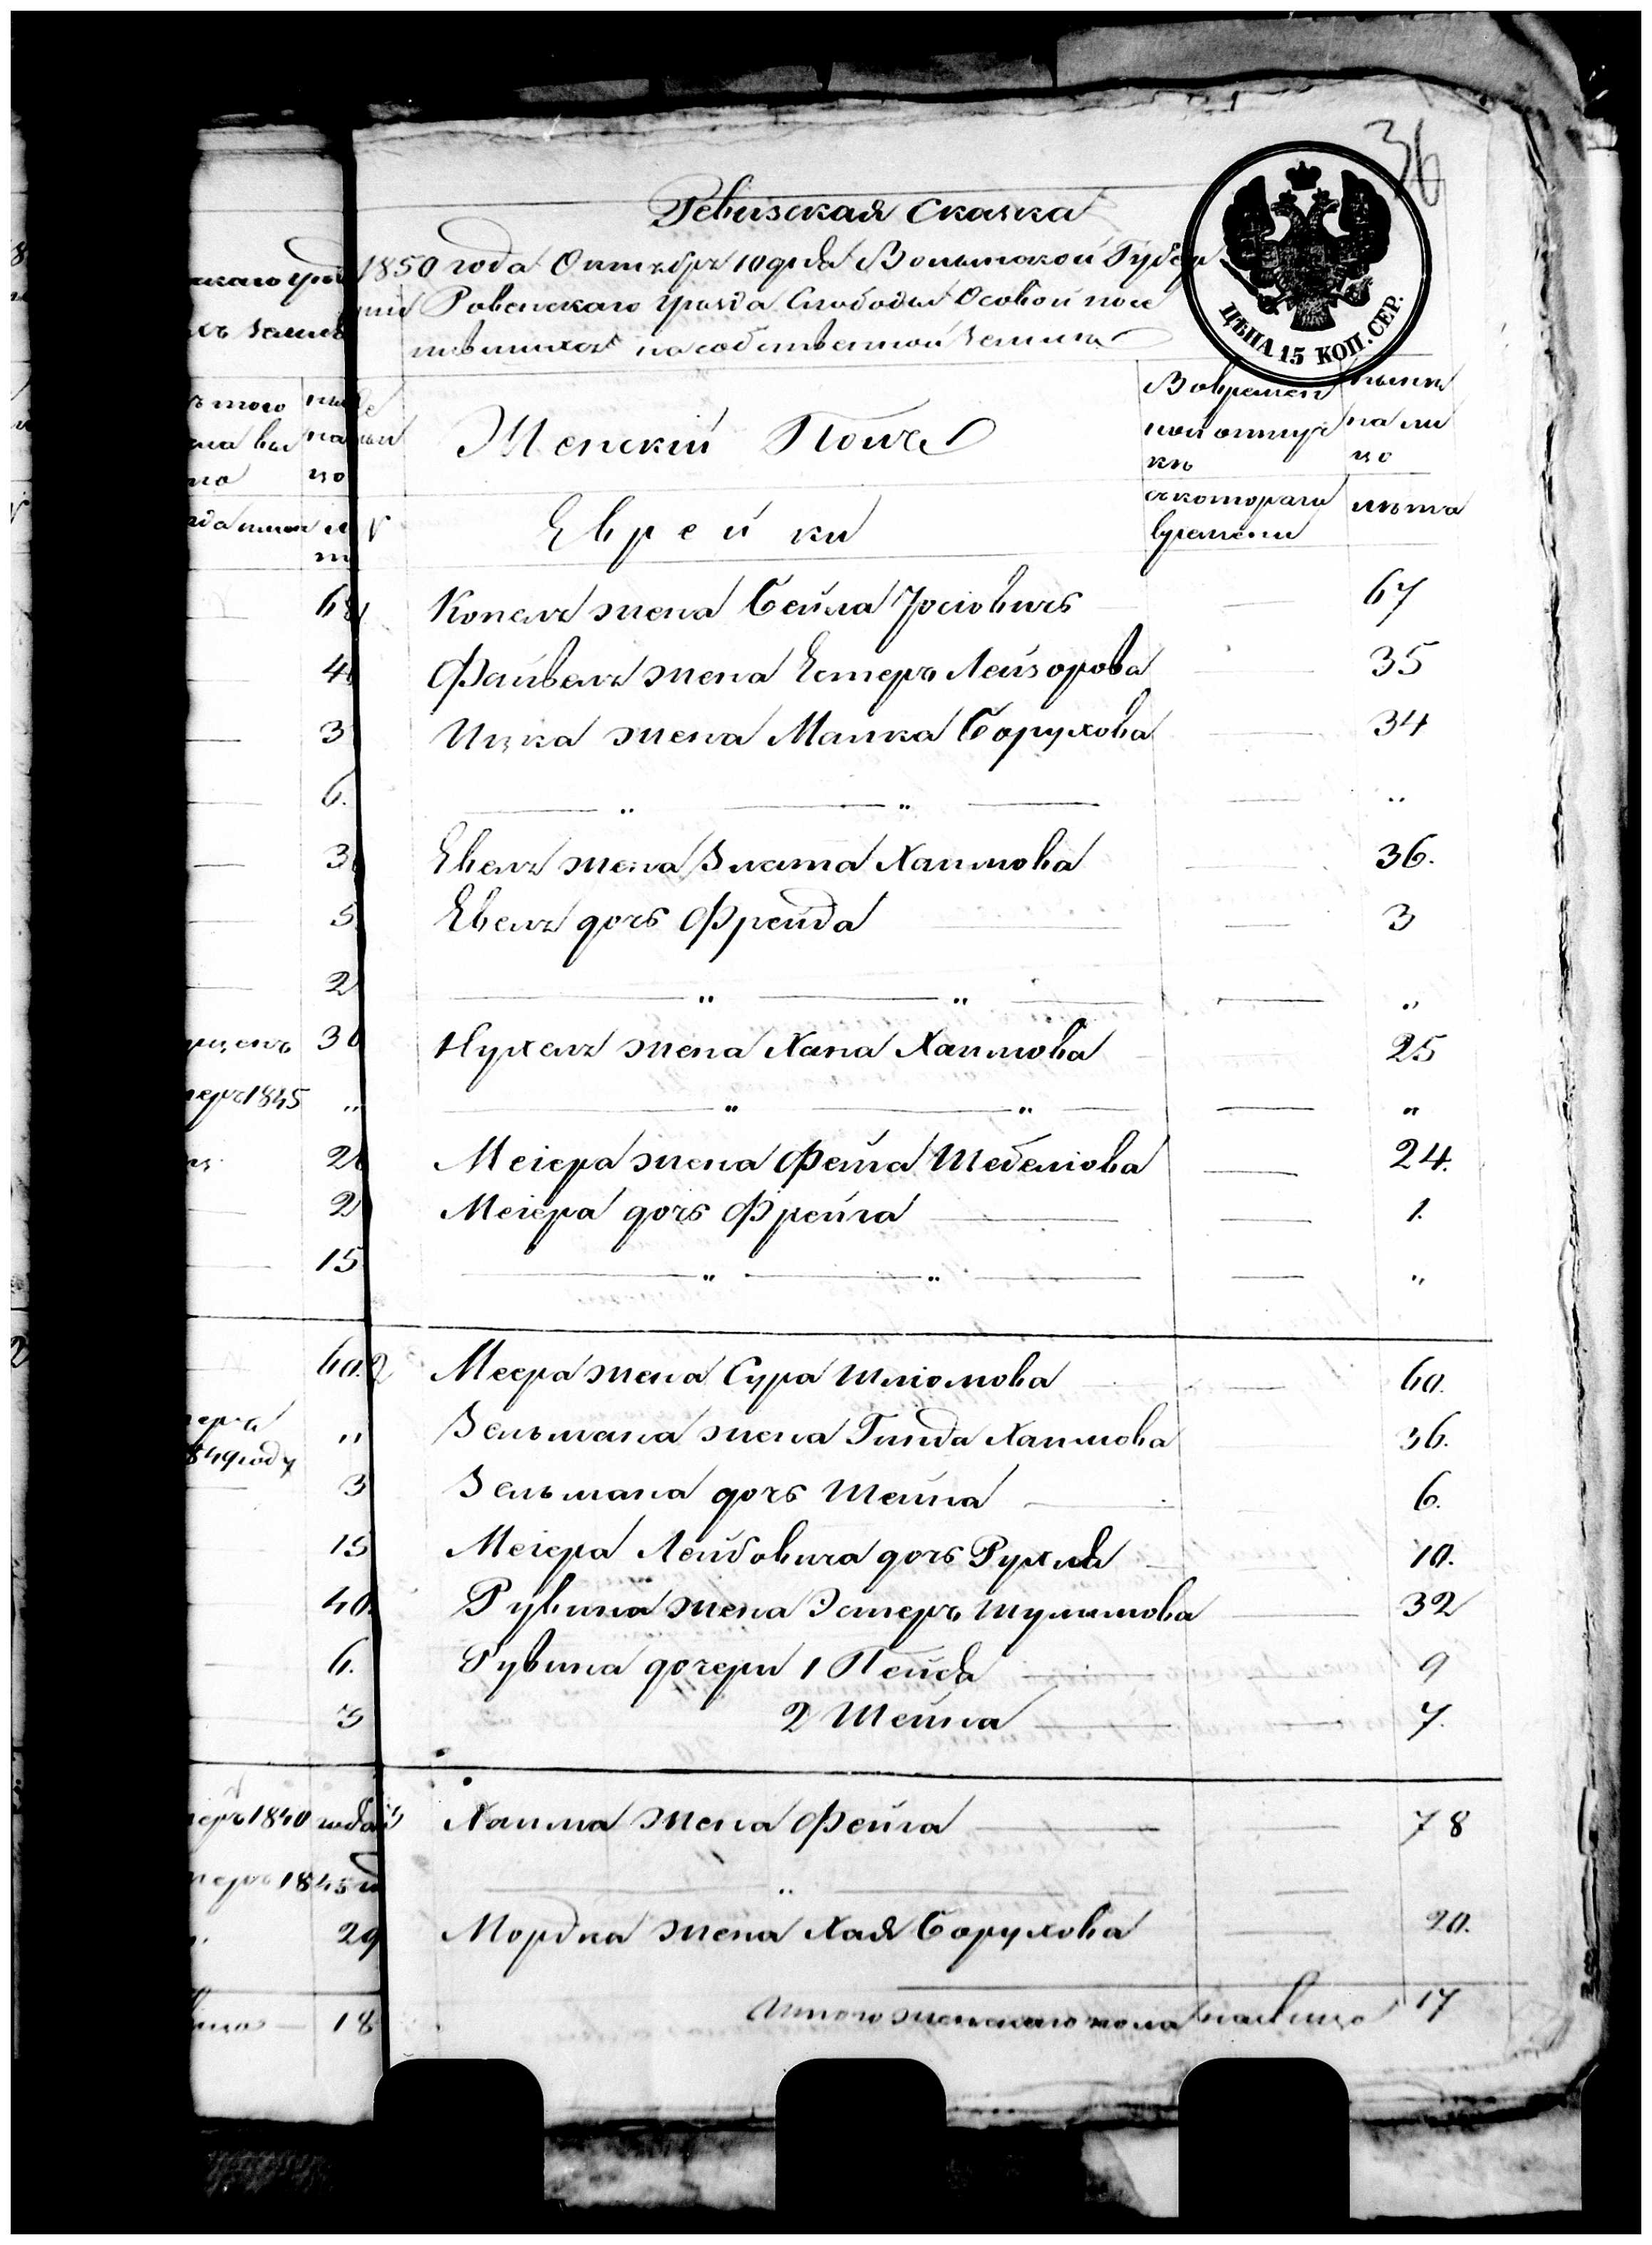 36
Ревизская Сказка
1850 года Октября 10 дня Волынской Губер
нии Ровенскаго уѣзда Слободы Осовой посе
лившихся на собственной земли
ЦѢНА 15 КОП. СЕР.
Женскій Полъ
Во времен
ной отлуч
кѣ
нынѣ
на ли
цо
Еврейки
съ котораго
времени
лѣта
1 Копеля жена Бейла Іосіовичъ — 67
Файвеля жена Естеръ Лейзорова — 35
Ицка жена Малка Борухова — 34
— „ — „ — — „
Евеля жена Злата Хаимова — 36.
Евеля дочь Фрейда — — 3
— „ — „ — — „
Нухеля жена Хана Хаимова 25
— „ — „ — — „
Меіера жена Фейга Шебеліова — 24.
Меіера дочь Фрейга — — 1.
— „ — „ — — „
2 Меера жена Сура Шліомова — 60.
Зельмана жена Гинда Хаимова 36.
Зельмана дочь Шейна — 6.
Меіера Лейбовича дочь Рухля 10.
Рувина жена Эстеръ Шулимова — 32
Рувина дочери 1 Пейса — 9
2 Шейна — 7.
3 Хаима жена Фейга — — 78
— „ — —
Мордка жена Хая Борухова — 20.
Итого женскаго пола налицо 17
68
6.
5
2
1845 „
2
15
60.
„
849 году
3
15
40.
6.
3
1840 года
1845
29
18